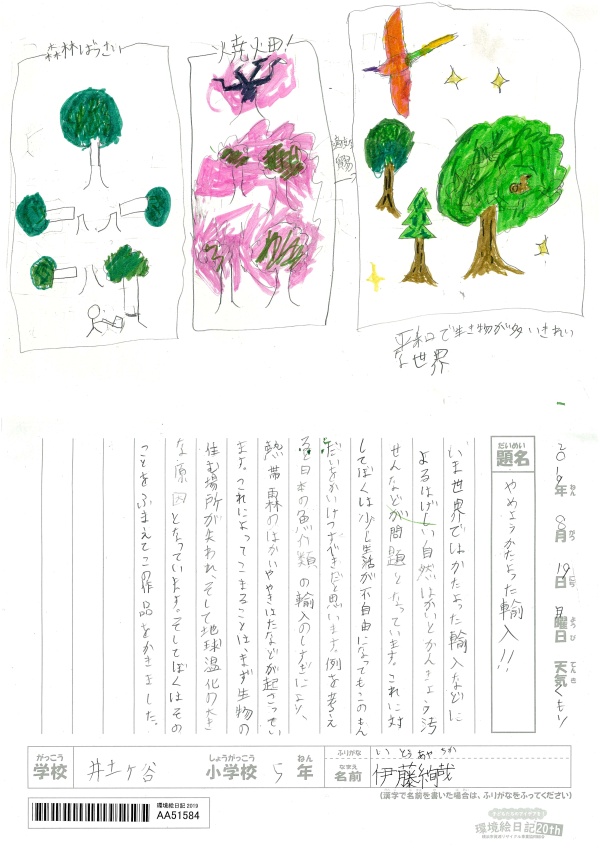 森林ばっさい
焼畑！
平和で生き物が多いきれい
な世界
2019年 8月 19日 月曜日 天気 くもり
ねん がつ にち ようび てんき
だいめい
題名
やめようかたよった輸入!!
いま世界ではかたよった輸入などに
よるはげしい自然はかいとかんきょう汚
せんなどが問題となっています。これに対
してぼくは少し生活が不自由になってもこのもん
だいをかいけつすべきだと思います。例を考え
ると日本の魚介類の輸入のしすぎにより、
熱帯雨林のはかいややきはたなどが起こってい
ます。これによってこまることは、まず生物の
住む場所が失われ、そして地球温化の大き
な原因となっています。そしてぼくはその
ことをふまえてこの作品をかきました。
がっこう
学校
井土ヶ谷
しょうがっこう
小学校
5
ねん
年
ふりがな
いとうあやちか
なまえ
名前
伊藤絢哉
(漢字で名前を書いた場合は、ふりがなをふってください)
環境絵日記 2019
AA51584
環境絵日記20th